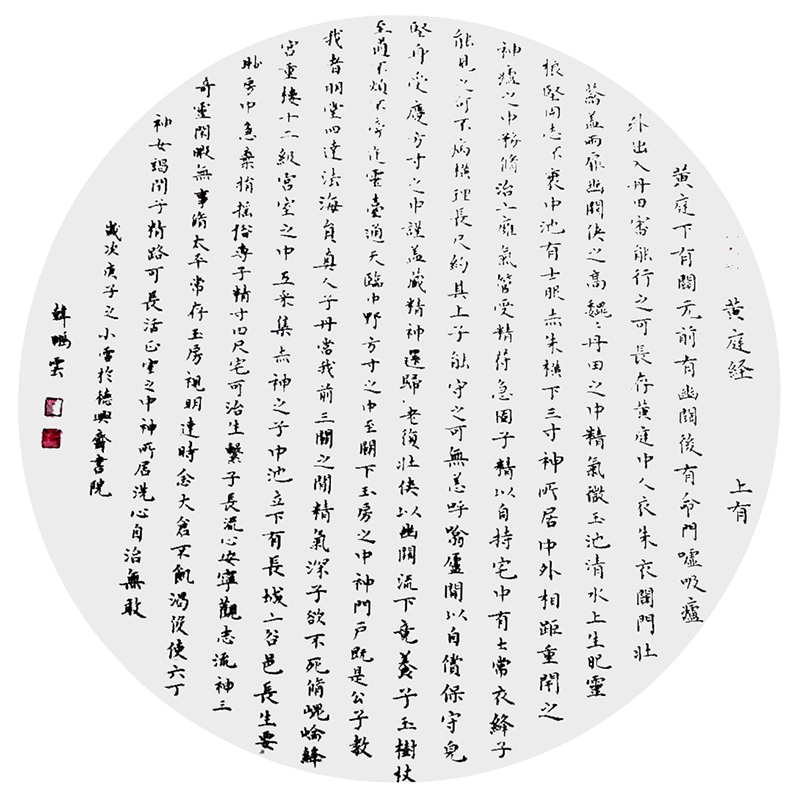 黄庭経　上有
黄庭下有關元前有幽闕後有命門嘘吸廬
外出入丹田審能行之可長存黄庭中人衣朱衣關門壮
蓋兩扉幽闕侠之高魏〻丹田之中精氣微玉池清水上生肥靈
根堅固志不衰中池有士服赤朱横下三寸神所居中外相距重閇之
神廬之中務脩治玄廱氣管受精符急固子精以自持宅中有士常衣絳子
能見之可不病横理長尺約其上子能守之可無恙呼噏廬間以自償保守皃
堅身受慶方寸之中謹蓋藏精神還歸老復壮侠以幽闕流下竟養子玉樹杖
至道不煩不旁迕靈臺通天臨中野方寸之中至關下玉房之中神門户既是公子教
我者明堂四達法海員真人子丹當我前三關之間精氣深子欲不死脩崐崘絳
宫重樓十二級宫室之中五采集赤神之子中池立下有長城玄谷邑長生要
眇房中急棄捐摇俗専子精寸田尺宅可治生繋子長流心安寧觀志流神三
奇靈閑暇無事脩太平常存玉房視明達時念大倉不飢渇役使六丁
神女謁閉子精路可長活正室之中神所居洗心自治無敢
歲次庚子之小雪於德興齋書院
韓鵬雲